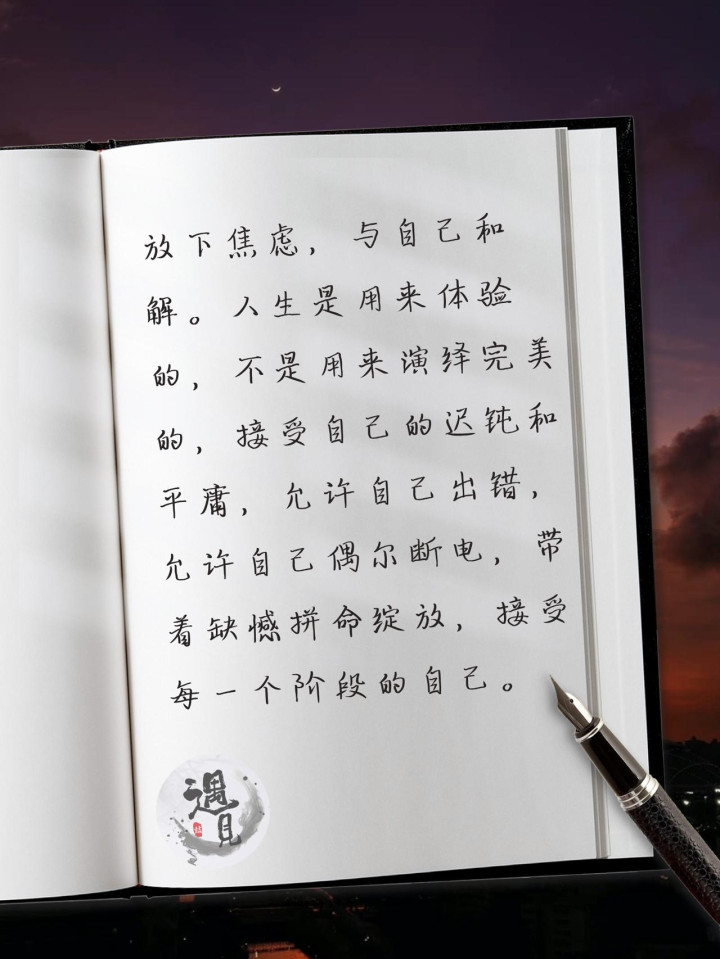 放下焦虑，与自己和
解。人生是用来体验
的，不是用来演绎完美
的，接受自己的迟钝和
平庸，允许自己出错，
允许自己偶尔断电，带
着缺憾拼命绽放，接受
每一个阶段的自己。
遇見